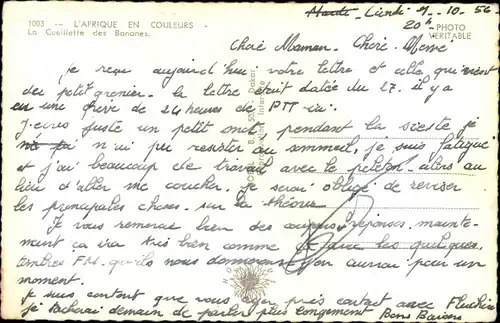 1003 — L'AFRIQUE EN COULEURS -
La Cueillette des Bananes.
PHOTO
VERITABLE
Lundi 1-10-56
20h
Cher Maman. Cher Mémé
je reçu aujourd'hui votre lettre et celle qui vient
du petit grenier. la lettre était datée du 27. il y a
eu une grève de 24 heures de PTT ici.
J'écris juste un petit mot, pendant la sieste je
n'ai pu resister au sommeil, je suis fatigué
et j'ai beaucoup de travail avec le peloton. alors au
lieu d'aller me coucher, je serai obligé de reviser
les principales choses. sur la théorie
Je vous remercie bien des coupons réponses. mainte-
ment ça ira très bien comme ça avec les quelques
timbres FM. qu'ils nous donneront. on aura pour un
moment.
je suis content que vous ayez pris contact avec
je tacherai demain de parler plus longement Bons Baisers